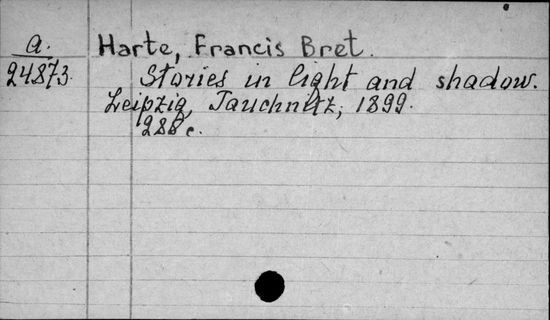 a.
24873.
Harte, Francis Bret.
Stories in light and shadow.
Leipzig, Tauchnitz, 1899.
288 c.